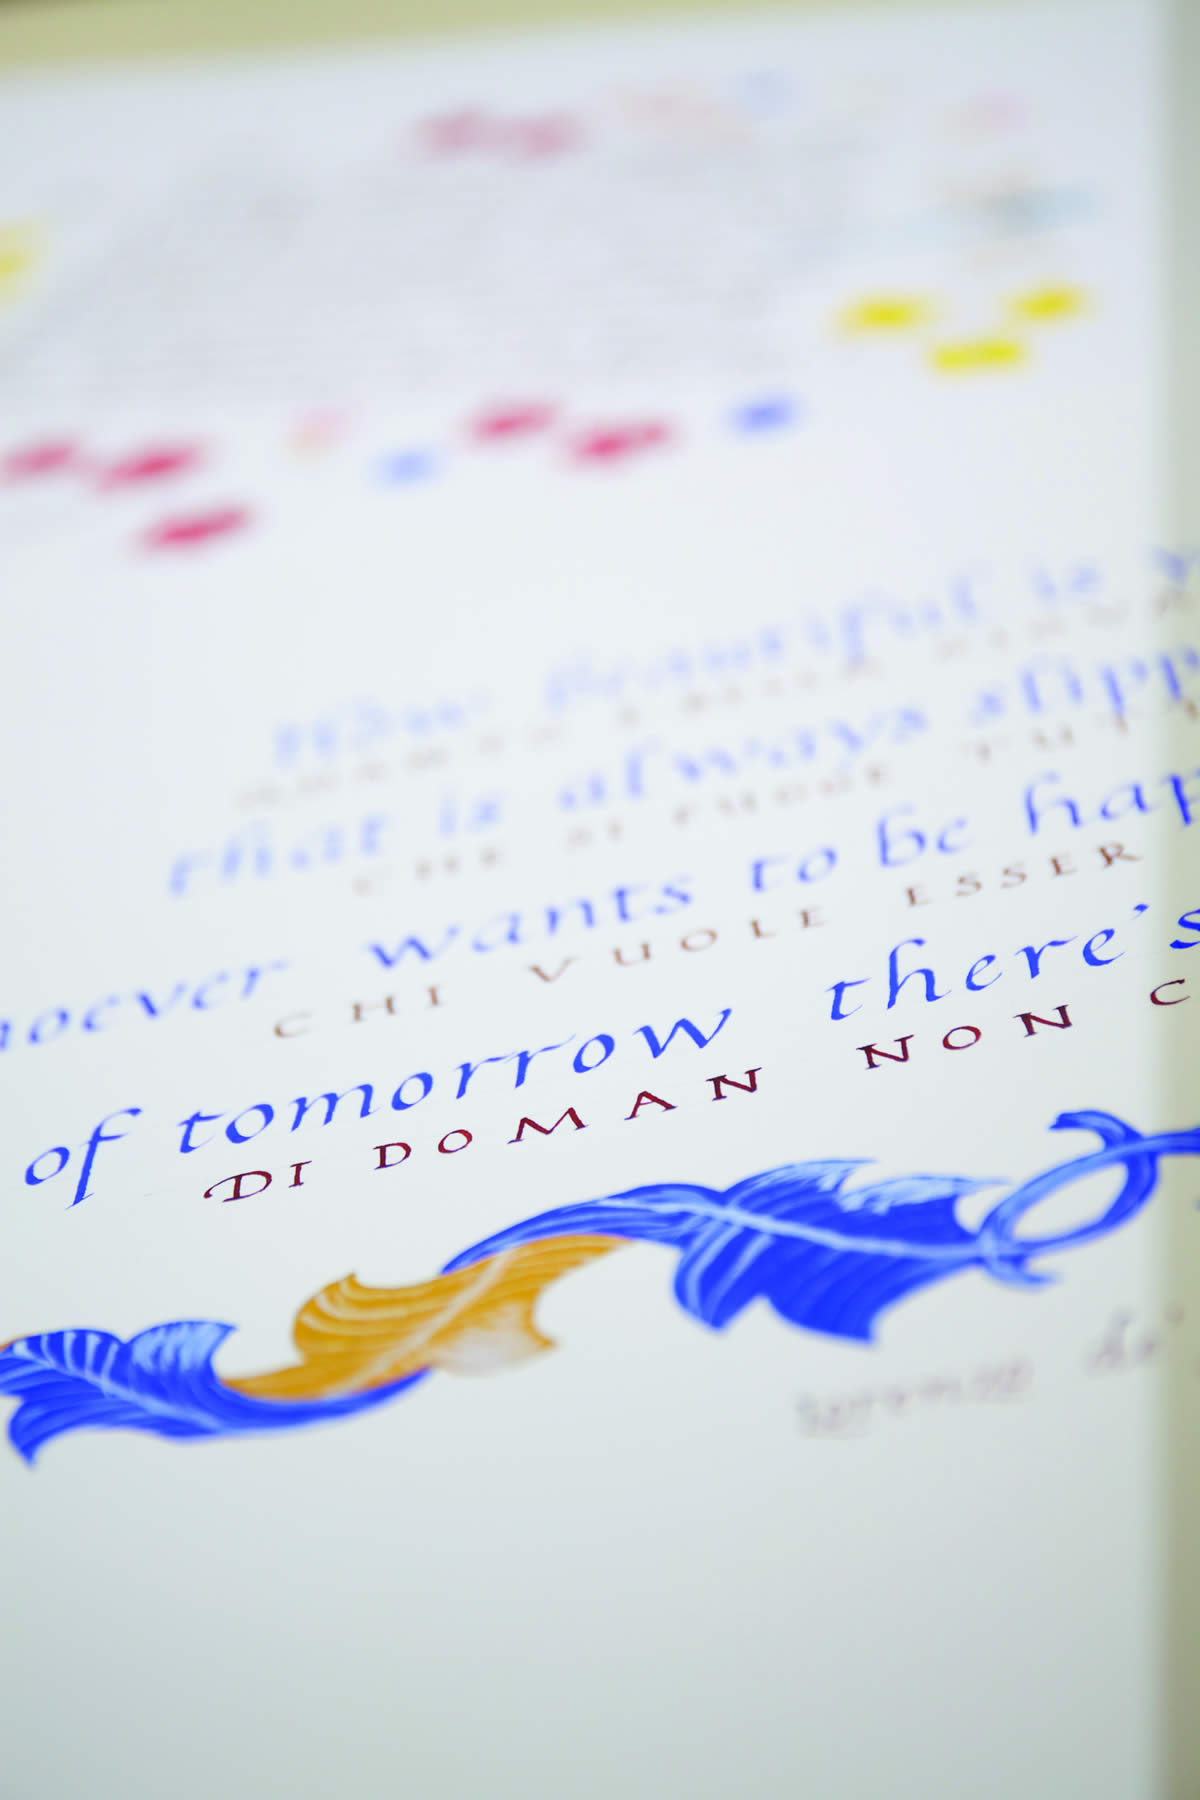 How beautiful is
BELLA
that is always slipp
CHE SI FUGGE TUT
hoever wants to be hap
CHI VUOLE ESSER
of tomorrow there's
DI DOMAN NON C
lorenzo de'